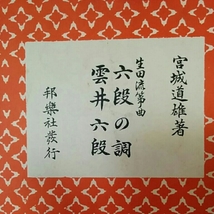 宮城道雄著
生田流箏曲
六段の調
雲井六段
邦樂社發行